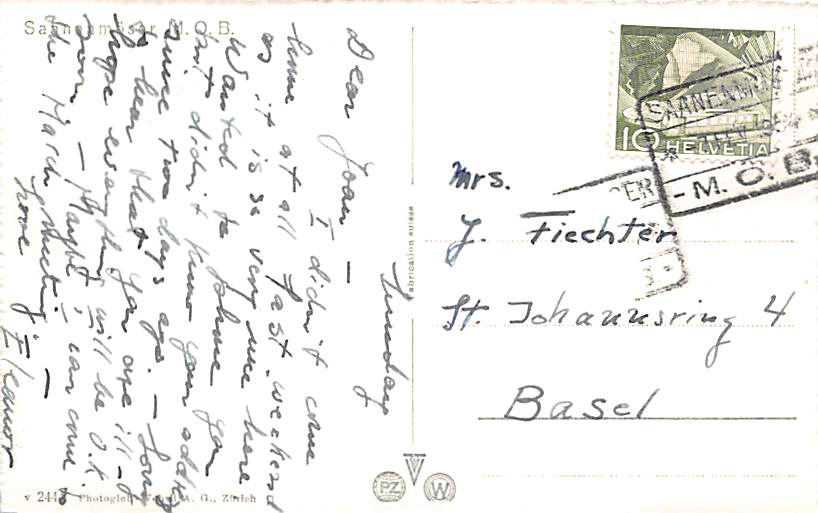 Saanenmöser M.O.B.
Tuesday
Dear Joan —
I didn't come
home at all last weekend
as it is so very nice here
Wanted to phone you
but didn't know your address
since two days ago. — Sorry
to hear that you are ill - I
hope everything will be o.k.
soon — Maybe I can come
the March meeting —
Love Eleanor
Fabrication suisse
10 HELVETIA
SAANENMÖSER
- M. O. B. -
Mrs.
J. Fiechter
St. Johannsring 4
Basel
PZ
W
v 244 Photoglob-Wehrli A. G., Zürich